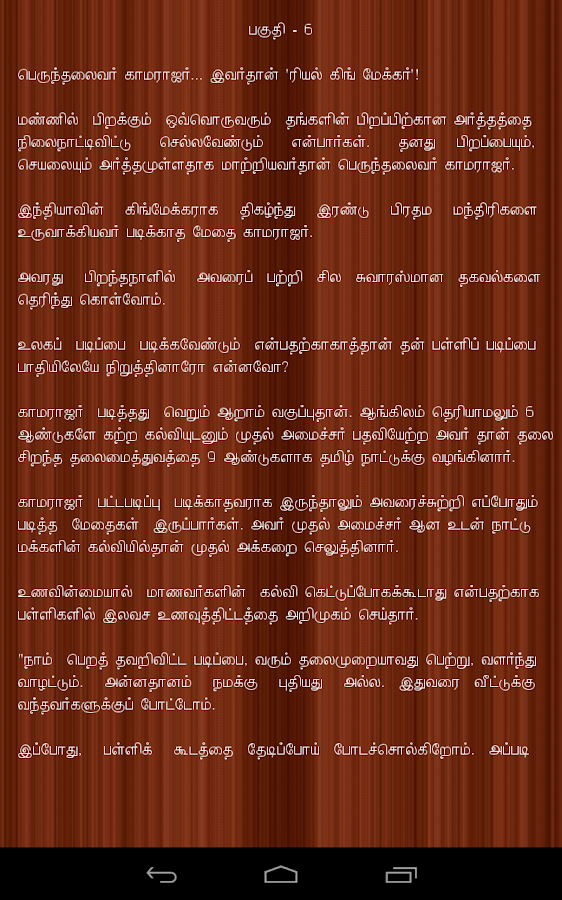 பகுதி - 6
பெருந்தலைவர் காமராஜர்... இவர்தான் 'ரியல் கிங் மேக்கர்'!
மண்ணில் பிறக்கும் ஒவ்வொருவரும் தங்களின் பிறப்பிற்கான அர்த்தத்தை
நிலைநாட்டிவிட்டு செல்லவேண்டும் என்பார்கள். தனது பிறப்பையும்,
செயலையும் அர்த்தமுள்ளதாக மாற்றியவர்தான் பெருந்தலைவர் காமராஜர்.
இந்தியாவின் கிங்மேக்கராக திகழ்ந்து இரண்டு பிரதம மந்திரிகளை
உருவாக்கியவர் படிக்காத மேதை காமராஜர்.
அவரது பிறந்தநாளில் அவரைப் பற்றி சில சுவாரஸ்மான தகவல்களை
தெரிந்து கொள்வோம்.
உலகப் படிப்பை படிக்கவேண்டும் என்பதற்காகாத்தான் தன் பள்ளிப் படிப்பை
பாதியிலேயே நிறுத்தினாரோ என்னவோ?
காமராஜர் படித்தது வெறும் ஆறாம் வகுப்புதான். ஆங்கிலம் தெரியாமலும் 6
ஆண்டுகளே கற்ற கல்வியுடனும் முதல் அமைச்சர் பதவியேற்ற அவர் தான் தலை
சிறந்த தலைமைத்துவத்தை 9 ஆண்டுகளாக தமிழ் நாட்டுக்கு வழங்கினார்.
காமராஜர் பட்டபடிப்பு படிக்காதவராக இருந்தாலும் அவரைச்சுற்றி எப்போதும்
படித்த மேதைகள் இருப்பார்கள். அவர் முதல் அமைச்சர் ஆன உடன் நாட்டு
மக்களின் கல்வியில்தான் முதல் அக்கறை செலுத்தினார்.
உணவின்மையால் மாணவர்களின் கல்வி கெட்டுப்போகக்கூடாது என்பதற்காக
பள்ளிகளில் இலவச உணவுத்திட்டத்தை அறிமுகம் செய்தார்.
"நாம் பெறத் தவறிவிட்ட படிப்பை, வரும் தலைமுறையாவது பெற்று, வளர்ந்து
வாழட்டும். அன்னதானம் நமக்கு புதியது அல்ல. இதுவரை வீட்டுக்கு
வந்தவர்களுக்குப் போட்டோம்.
இப்போது, பள்ளிக் கூடத்தை தேடிப்போய் போடச்சொல்கிறோம். அப்படி